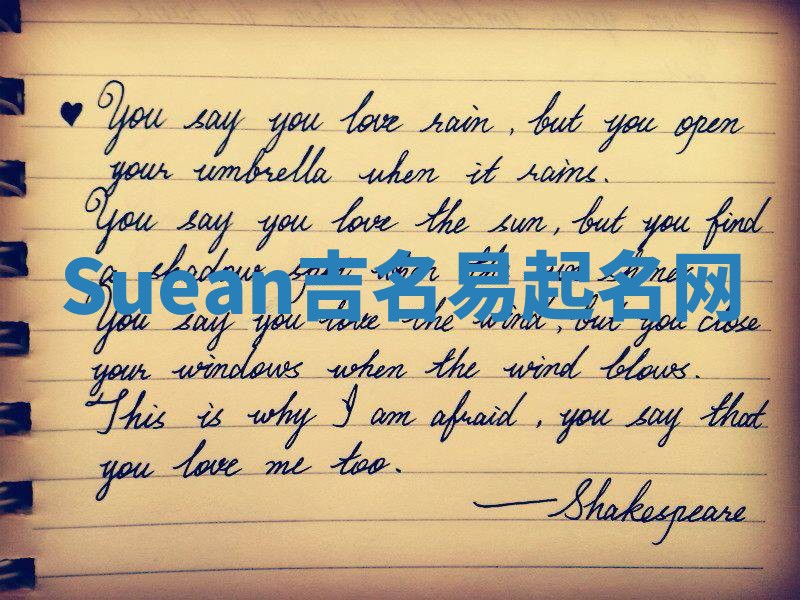 ♥ You say you love rain, but you open
your umbrella when it rains.
You say you love the sun, but you find
a shadow spot when the sun shines.
Suean吉名易起名网
You say you love the wind, but you close
your windows when the wind blows.
This is why I am afraid, you say that
you love me too.
—Shakespeare